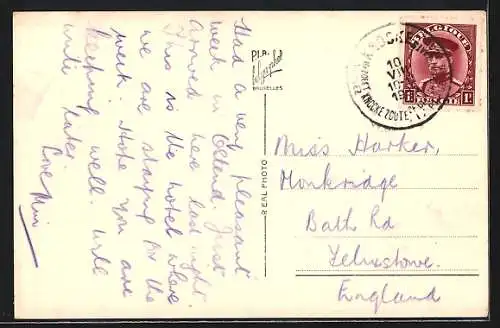 Had a very pleasant
week in Ostend. Just
arrived here last night.
This is the hotel where
we are staying for the
week. Hope you are
keeping well. Write
until later.
Love
PIB
BRUXELLES
REAL PHOTO
KNOCKE ZOUTE
10
VII
19
BELGIQUE
1F
BELGIË
Miss Harker,
Monkridge
Bath Rd
Felixstowe.
England